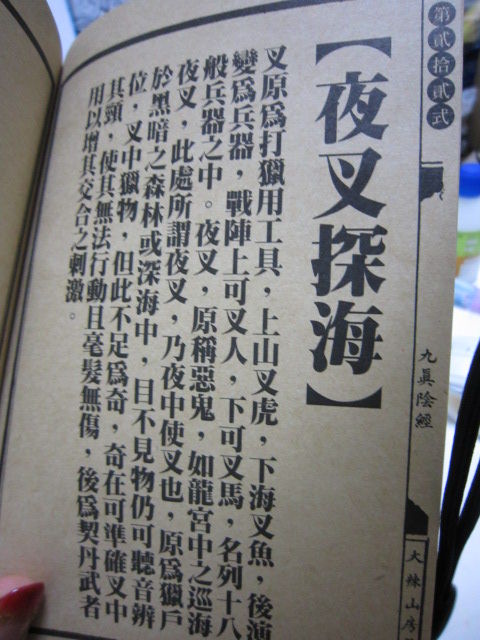 第貳拾貳式
九真陰經
大辣山房
【夜叉探海】
叉原為打獵用工具，上山叉虎，下海叉魚，後演
變為兵器，戰陣上可叉人，下可叉馬，名列十八
般兵器之中。夜叉，原稱惡鬼，如龍宮中之巡海
夜叉，此處所謂夜叉，乃夜中使叉也，原為獵戶
於黑暗之森林或深海中，目不見物仍可聽音辨
位，叉中獵物，但此不足為奇，奇在可準確叉中
其頸，使其無法行動且毫髮無傷，後為契丹武者
用以增其交合之刺激。